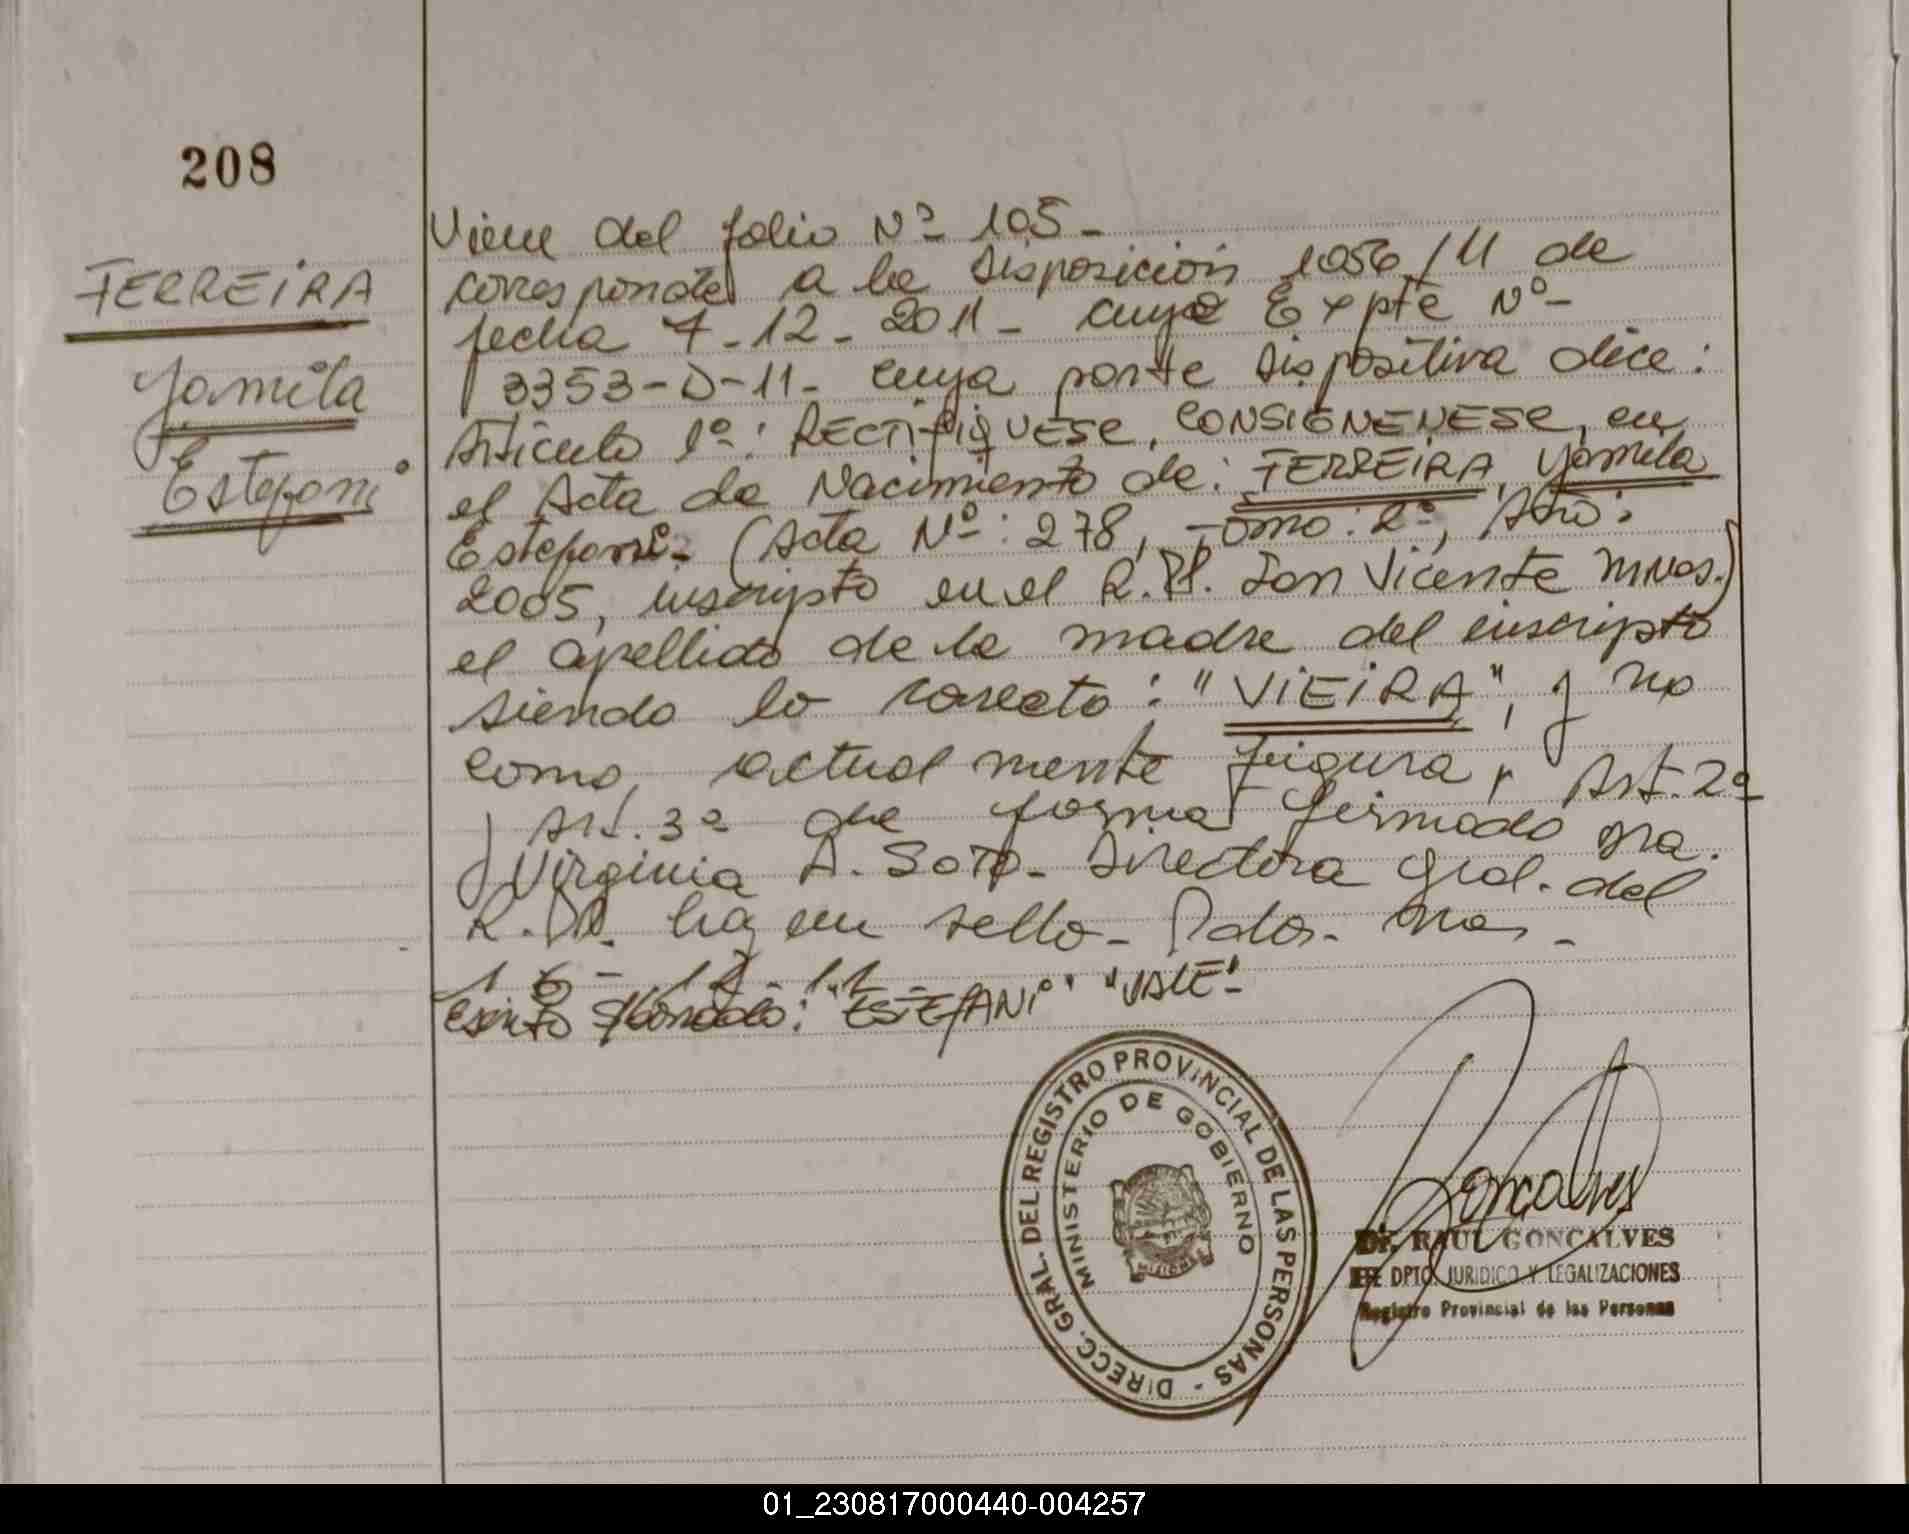 208
FERREIRA
Yamila
Estefani
Viene del folio Nº 105 -
corresponde a la Disposición 1056/11 de
fecha 7-12-2011- cuyo Expte Nº-
3353-D-11- cuya parte dispositiva dice:
Artículo 1º: RECTIFIQUESE, CONSIGNENESE, en
el Acta de Nacimiento de: FERREIRA, Yamila
Estefani- (Acta Nº: 278, Tomo: 2º, Año:
2005, inscripto en el R.P. San Vicente Mnes.)
el apellido de la madre del inscripto
siendo lo correcto: "VIEIRA", y no
como, actualmente figura, Art. 2º
y Art. 3º de forma firmado
Virginia A. Soto- Directora Gral. del
R.P. hay un sello- Pdas. Mnes.-
16-12-11
Escrito s/borrado: "ESTEFANI" "VALE"-
DIRECC. GRAL. DEL REGISTRO PROVINCIAL DE LAS PERSONAS -
MINISTERIO DE GOBIERNO
MISIONES
Goncalves
Dr. RAUL GONCALVES
JEFE DPTO. JURIDICO Y LEGALIZACIONES
Registro Provincial de las Personas
01_230817000440-004257